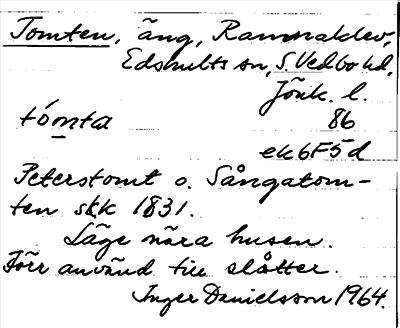 Tomten, äng, Ramnaklev,
Edshults sn, S. Vedbo hd,
Jönk. l.
tómta 86
ek 6F5d
Peterstomt o. Sångatom-
ten skk 1831.
Läge nära husen.
Förr använd till slåtter.
Inger Danielsson 1964.